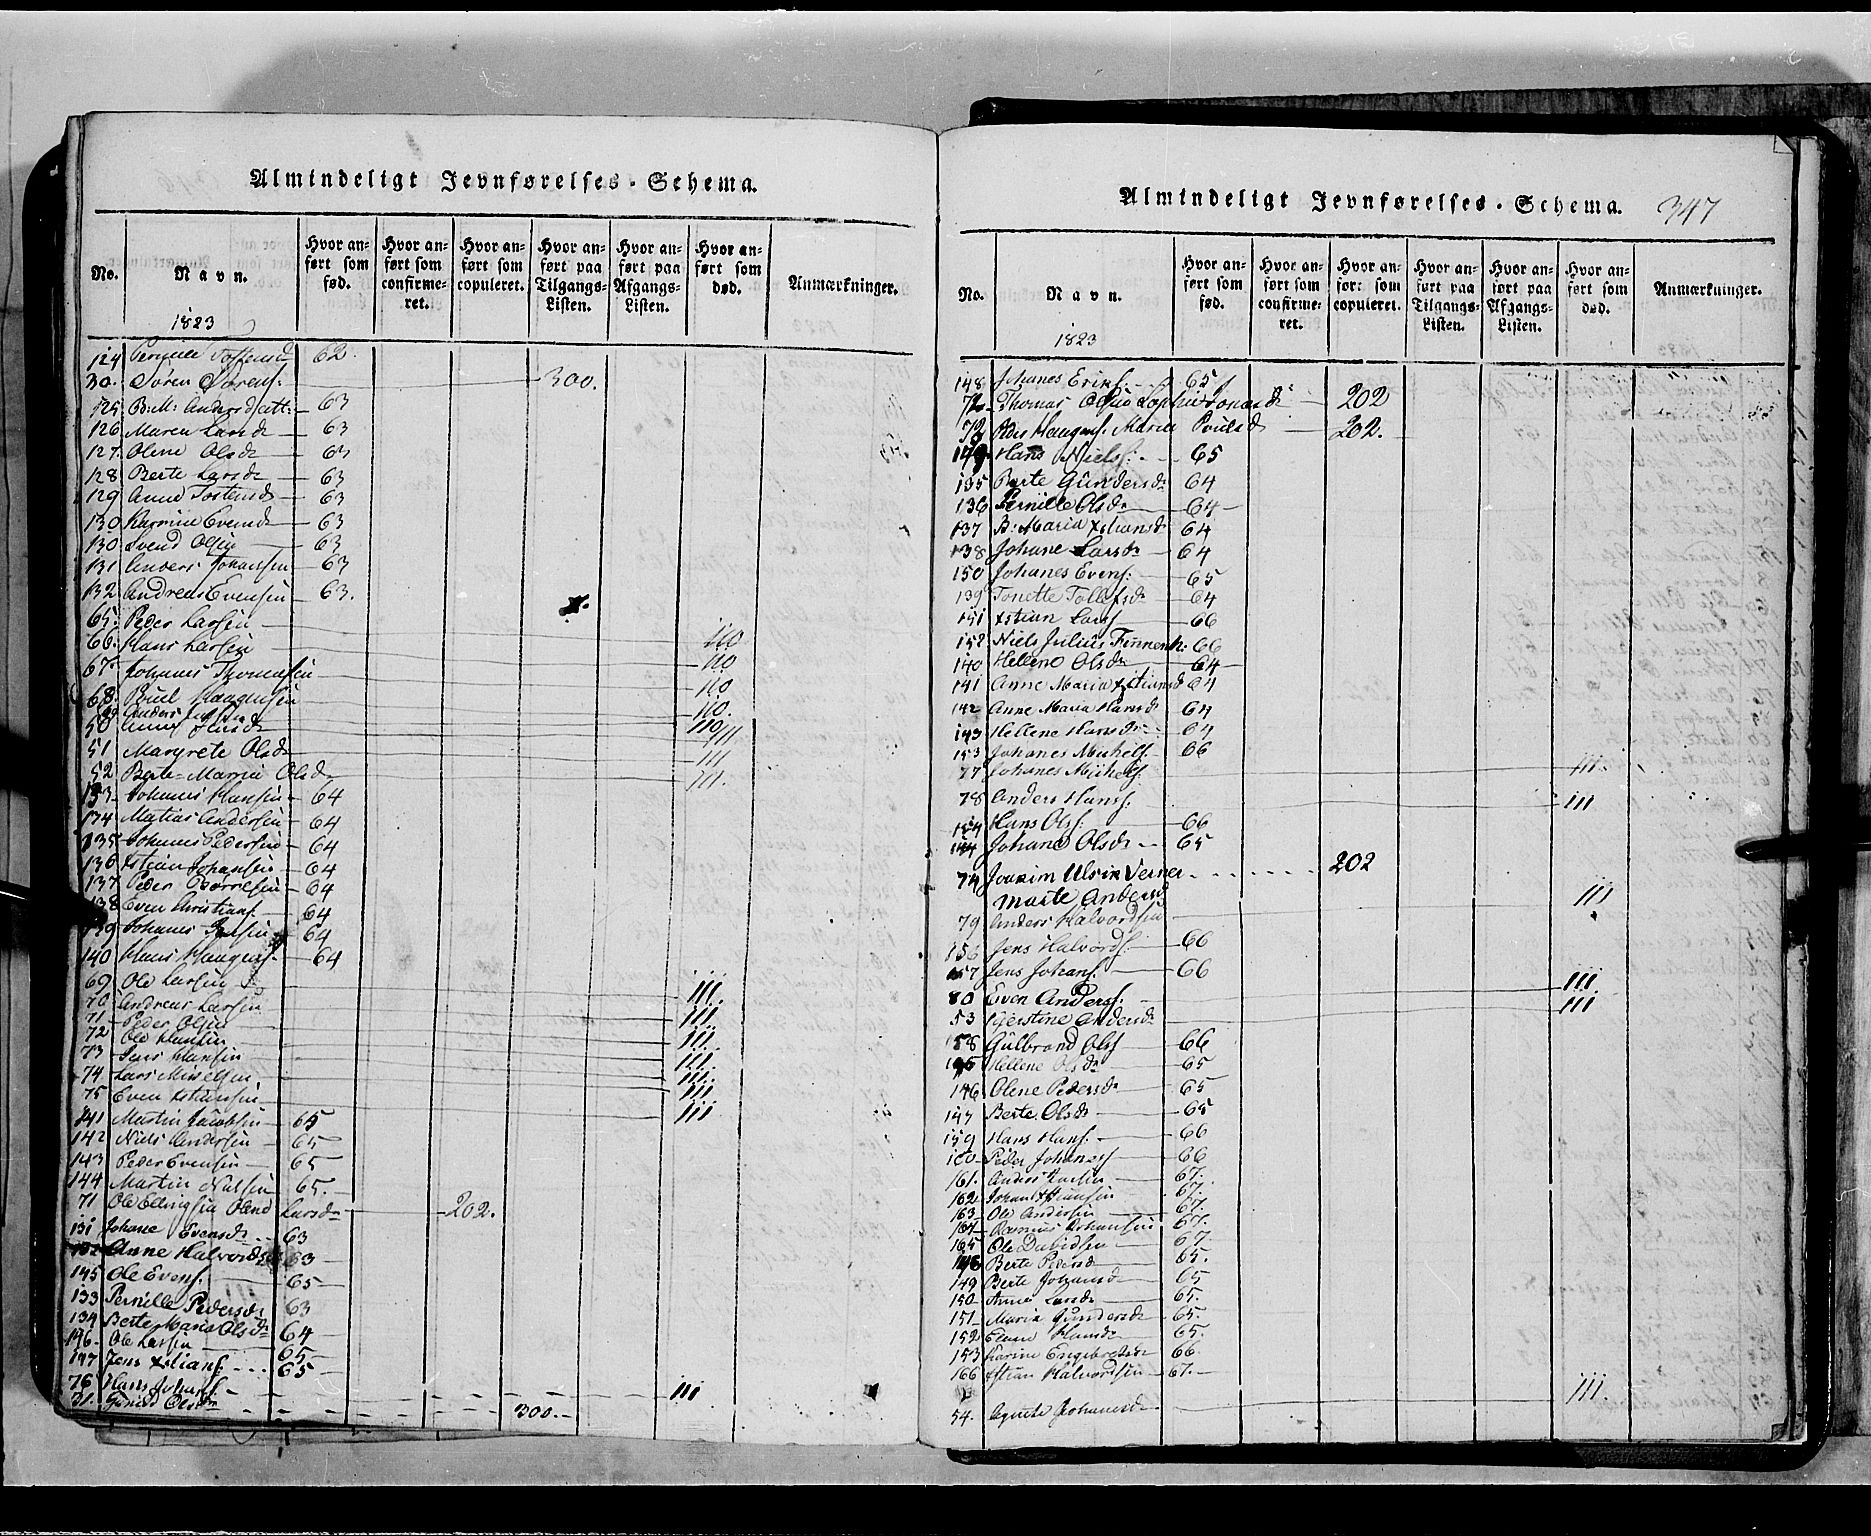 Almindeligt Jevnførelses-Schema.
No. Navn. Hvor anført som fød. Hvor anført som confirmeret. Hvor anført som copuleret. Hvor anført paa Tilgangs-Listen. Hvor anført paa Afgangs-Listen. Hvor anført som død. Anmærkninger.
1823
124 Pernille Tostensd 62.
30. Søren Sørens. 300.
125 B: M: Andersdatt: 63
126 Maren Larsd 63
127. Olene Olsd 63
128 Berte Larsd 63
129 Anne Tostensd 63
130 Evensd 63
130 Svend Olsen 63
131 Anders Johansen 63
132 Andreas Evensen 63.
65. Peder Larsen 110
66. Hans Larsen 110
67. Johannes Thomesen 110
68. Poul Haagensen 110.
Anders 110
50 Anne Jensd 111
51 Margrete Olsd 111
52 Berte Maria Olsd 111.
133 Johannes Hansen 64
134 Matias Andersen 64
135 Johannes Pedersen 64
136 Xstian Johansen 64
137 Peder 64
138 Even Christians. 64
139 Johannes Jensen 64
140 Hans Haagens. 64
69 Ole Larsen 111.
70 Andreas Larsen 111.
71 Peder Olsen 111.
72 Ole Hansen 111.
73 Jens Hansen 111.
74 Lars 111
75 Even Xstiansen 111
141 Martin Jacobsen 65
142 Niels Andersen 65
143 Peder Evensen 65
144 Martin Nilsen 65.
71 Ole Ellingsen Olene Larsd 202.
131 Johane Evensd 63
132 Anne Halvordsd 63
145 Ole Evens. 65
133 Pernille Pedersd 63
134 Berte Maria Olsd 64
146. Ole Larsen 65
147 Jens Xstians. 65
76 Hans Johans. 111
31. Olsen 300.
Almindeligt Jevnførelses-Schema. 347
No. Navn. Hvor anført som fød. Hvor anført som confirmeret. Hvor anført som copuleret. Hvor anført paa Tilgangs-Listen. Hvor anført paa Afgangs-Listen. Hvor anført som død. Anmærkninger.
1823
148 Johanes Eriks. 65
72 Thomas Sophie Jonasd 202
73 Peder Haagens. Maria Povelsd 202.
149 Hans Niels. 65
135 Berte Gundersd 64
136 Pernille Olsd 64
137 B: Maria Xstiansd 64
138 Johane Larsd 64
150 Johanes Evens. 65
139 Tonette Tollefsd 64
151 Xstian Lars. 66
152 Niels Julius 66
140 Hellene Olsd 64
141 Anne Maria Xstiansd 64
142 Anne Maria Hansd 64
143 Hellene Hansd 64
153 Johanes Michels. 66
77 Johanes Michels. 111.
78 Anders Hans. 111
154 Hans Ols. 66
144 Johane Olsd 65
74 Joakim Ulrik Verner 202
Marte Andersd
79 Anders Halvordsen 111
156 Jens Halvords. 66
157 Jens Johans. 66
80 Even Anders. 111.
53 Kjerstine Andersd 111
158 Gulbrand Ols. 66
145 Hellene Olsd 65
146 Olene Pedersd 65
147 Berte Olsd 65
159 Hans Hans. 66
160 Peder Johanes. 66
161. Anders 67.
162 Johan Xstiansen 67.
163 Ole Andersen 67.
164 Rasmus Johansen 67.
165 Ole Davidsen 67
148 Berte Pedersd 65.
149 Berte Johansd 65
150 Anne Larsd 65.
151 Maria Gundersd 65.
152 Hansd 65.
153 Karine Engebretsd 66.
166 Xstian Halvordsen 67.
54. Agnete Johanesd 111.